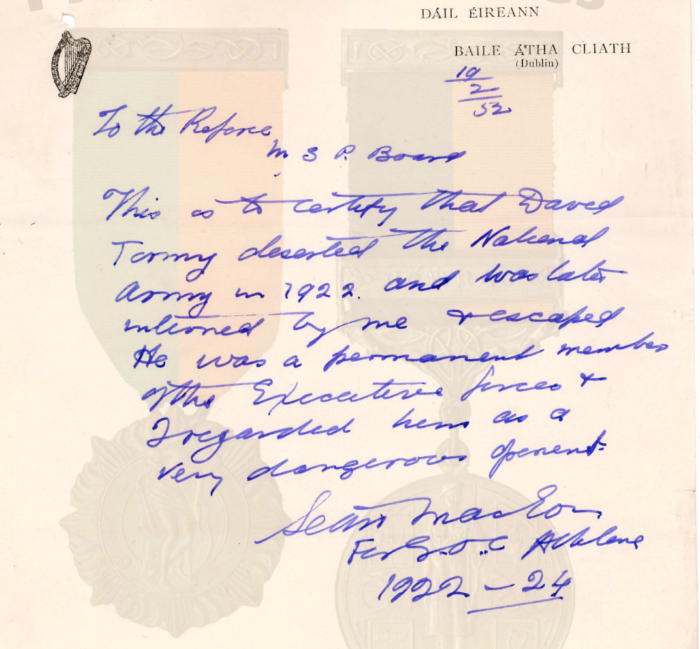 DÁIL ÉIREANN
BAILE ÁTHA CLIATH
(Dublin)
19
2
52
To the Referee
M S P. Board
This is to certify that David
Tormy deserted the National
Army in 1922. and was later
interned by me & escaped
He was a permanent member
of the Executive forces &
I regarded him as a
very dangerous oponent.
Seán MacEoin
G.O.C Athlone
1922 – 24